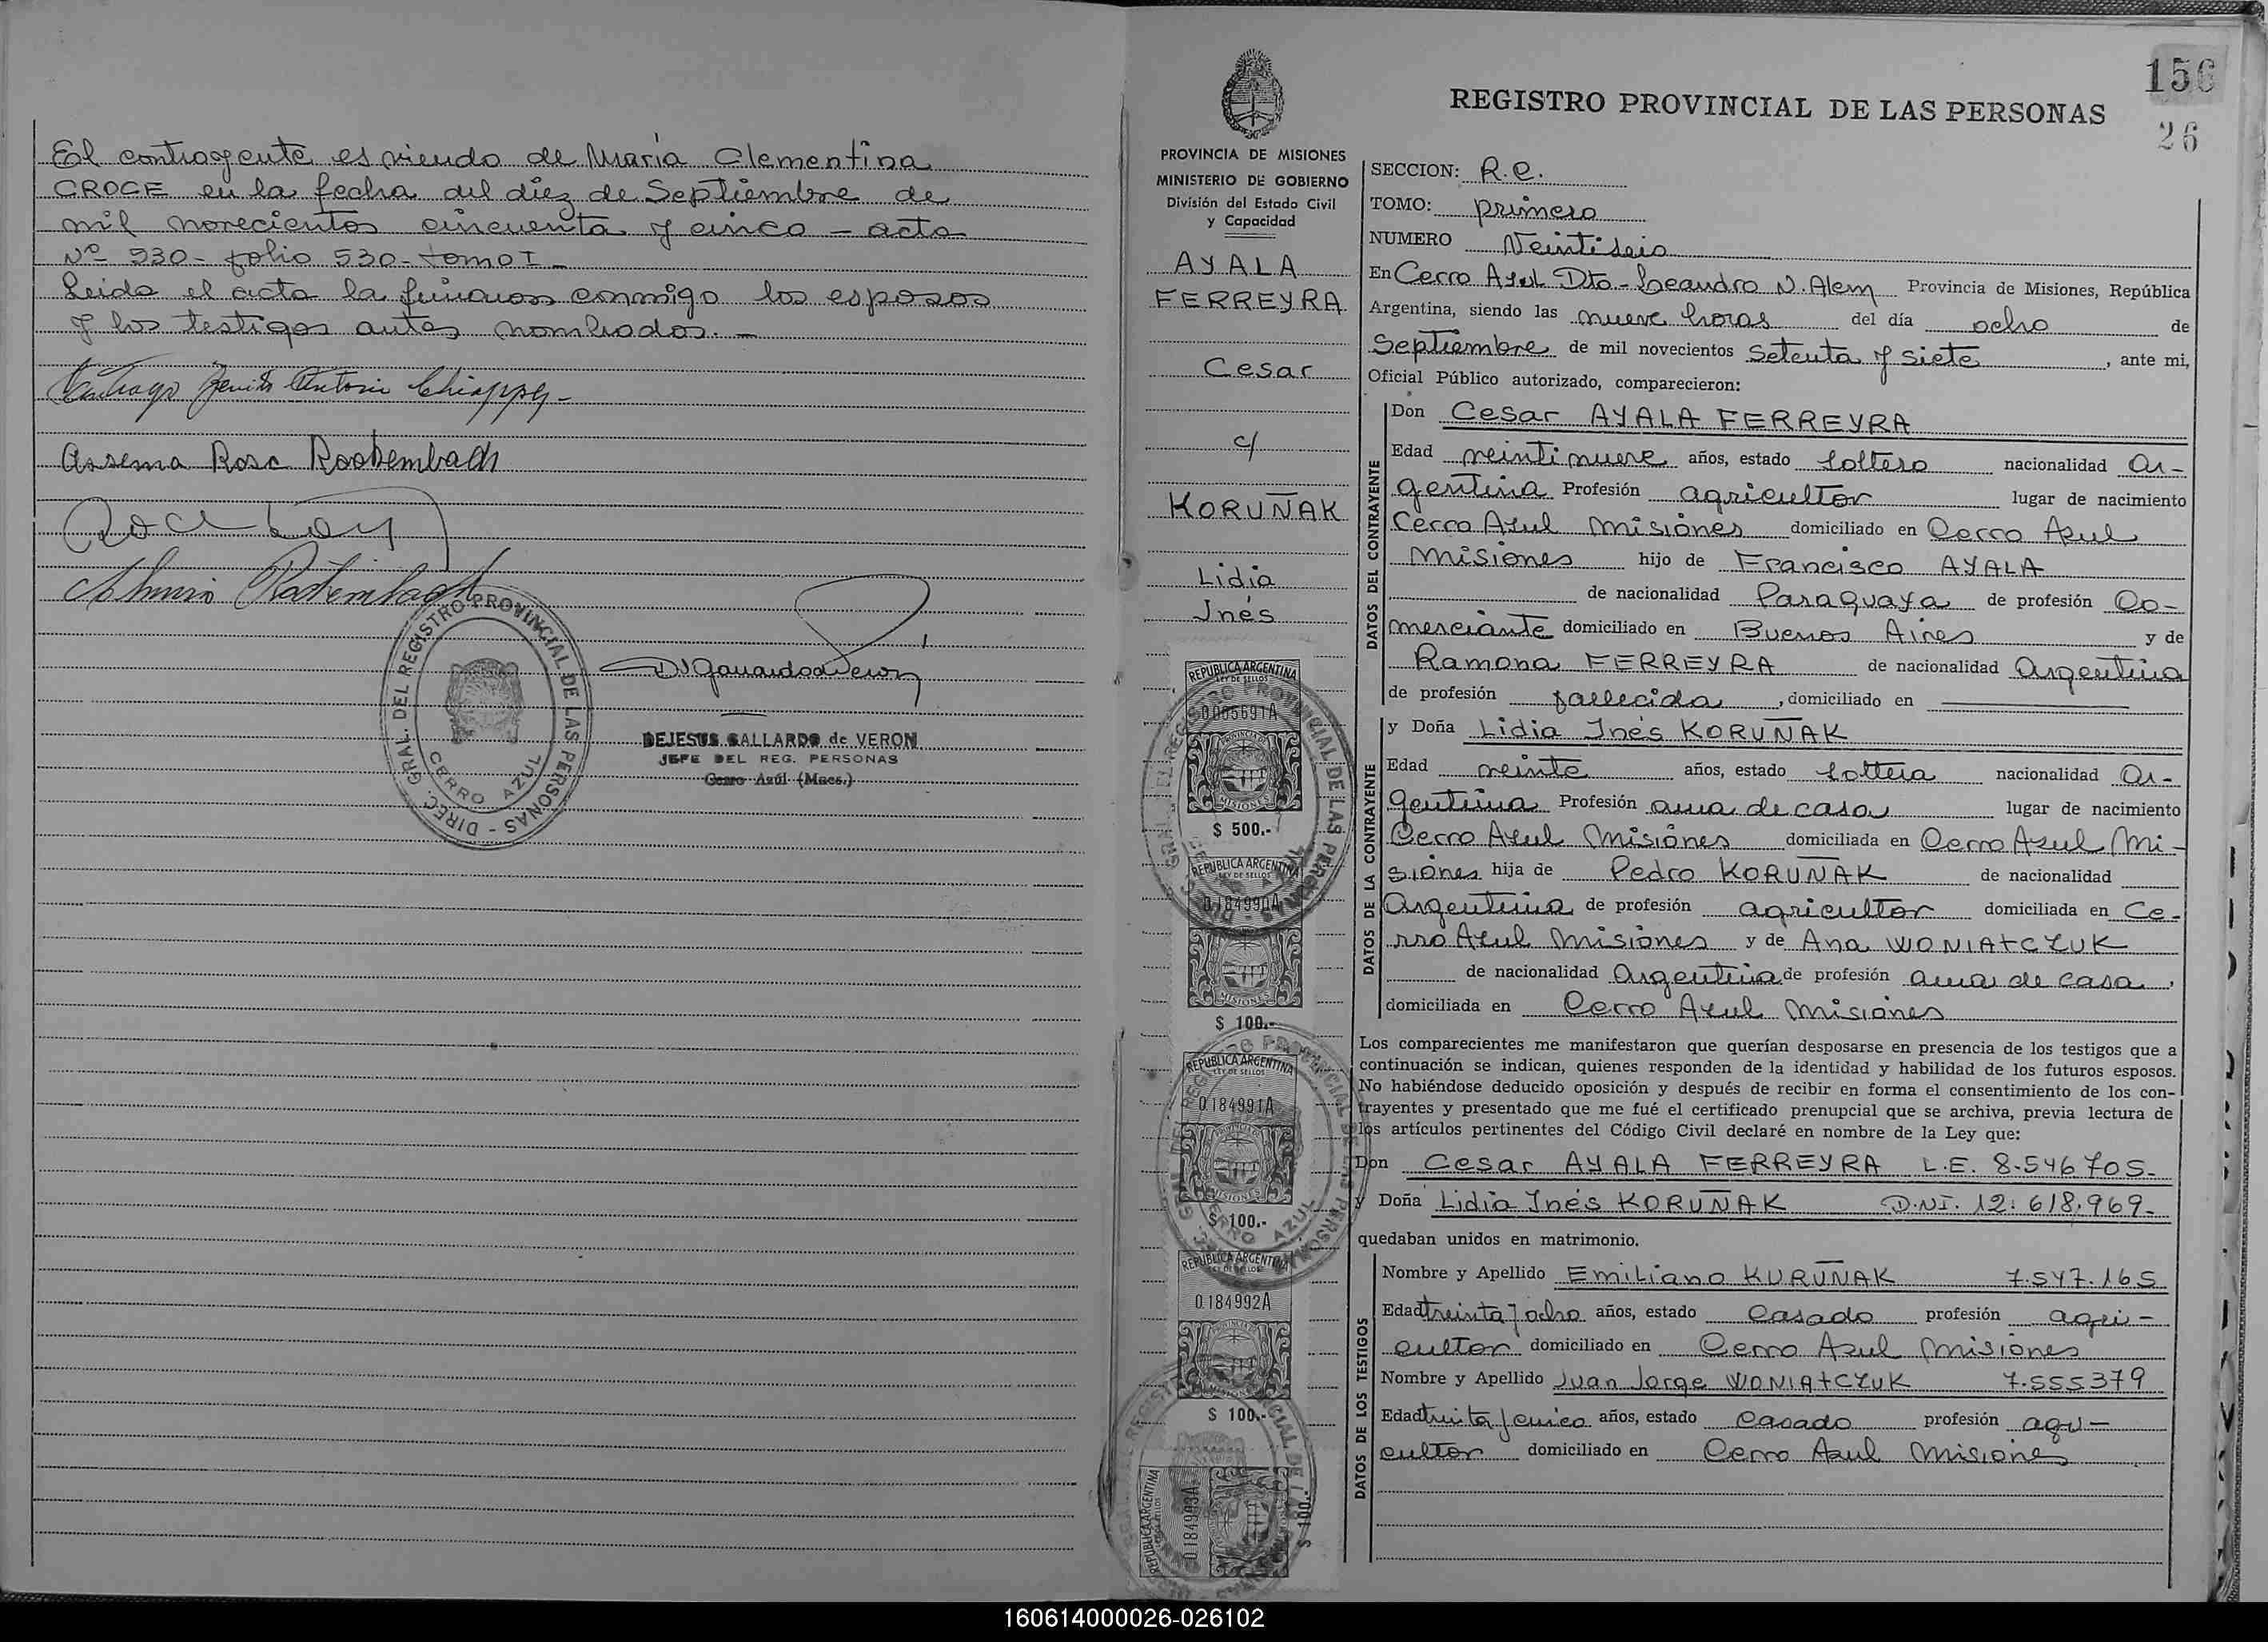 El contrayente es viudo de María Clementina
CROCE en la fecha del diez de Septiembre de
mil novecientos cincuenta y cinco - acta
Nº 530 - folio 530 - tomo I -
Leida el acta la firman conmigo los esposos
y los testigos antes nombrados. -
Santiago Benito Antonio Chiappy -
Assema Rosa Rootembach
Rootembach
DIREC. GRAL. DEL REGISTRO PROVINCIAL DE LAS PERSONAS -
CERRO AZUL
DEJESUS GALLARDO de VERON
JEFE DEL REG. PERSONAS
Cerro Azúl (Mnes.)
156
26
REGISTRO PROVINCIAL DE LAS PERSONAS
PROVINCIA DE MISIONES
MINISTERIO DE GOBIERNO
División del Estado Civil
y Capacidad
AYALA
FERREYRA
Cesar
c/
KORUÑAK
Lidia
Inés
REPUBLICA ARGENTINA
LEY DE SELLOS
0.005691A
MISIONES
$ 500.-
REPUBLICA ARGENTINA
LEY DE SELLOS
0.184990A
MISIONES
$ 100.-
REPUBLICA ARGENTINA
LEY DE SELLOS
0.184991A
MISIONES
$ 100.-
REPUBLICA ARGENTINA
LEY DE SELLOS
0.184992A
MISIONES
$ 100.-
REPUBLICA ARGENTINA
LEY DE SELLOS
0.184993A
$ 100.-
SECCION: R.e.
TOMO: primero
NUMERO Veintiseis
En Cerro Azul Dto-Leandro N. Alem Provincia de Misiones, República
Argentina, siendo las nueve horas del día ocho de
Septiembre de mil novecientos setenta y siete, ante mi,
Oficial Público autorizado, comparecieron:
DATOS DEL CONTRAYENTE
Don Cesar AYALA FERREYRA
Edad veintinueve años, estado soltero nacionalidad Ar-
gentina Profesión agricultor lugar de nacimiento
Cerro Azul Misiones domiciliado en Cerro Azul
Misiones hijo de Francisco AYALA
de nacionalidad Paraguaya de profesión Co-
merciante domiciliado en Buenos Aires y de
Ramona FERREYRA de nacionalidad Argentina
de profesión fallecida, domiciliado en
DATOS DE LA CONTRAYENTE
y Doña Lidia Inés KORUÑAK
Edad veinte años, estado soltera nacionalidad Ar-
gentina Profesión ama de casa lugar de nacimiento
Cerro Azul Misiones domiciliada en Cerro Azul Mi-
siones hija de Pedro KORUÑAK de nacionalidad
Argentina de profesión agricultor domiciliada en Ce-
rro Azul Misiones y de Ana WONIATCZUK
de nacionalidad Argentina de profesión ama de casa,
domiciliada en Cerro Azul Misiones
Los comparecientes me manifestaron que querían desposarse en presencia de los testigos que a
continuación se indican, quienes responden de la identidad y habilidad de los futuros esposos.
No habiéndose deducido oposición y después de recibir en forma el consentimiento de los con-
trayentes y presentado que me fué el certificado prenupcial que se archiva, previa lectura de
los artículos pertinentes del Código Civil declaré en nombre de la Ley que:
Don Cesar AYALA FERREYRA L.E. 8.546705-
y Doña Lidia Inés KORUÑAK D.NI. 12.618.969-
quedaban unidos en matrimonio.
DATOS DE LOS TESTIGOS
Nombre y Apellido Emiliano KURUÑAK 7.547.165
Edad treinta y ocho años, estado Casado profesión agri-
cultor domiciliado en Cerro Azul Misiones
Nombre y Apellido Juan Jorge WONIATCZUK 7.555379
Edad treinta y cinco años, estado Casado profesión agri-
cultor domiciliado en Cerro Azul Misiones
160614000026-026102